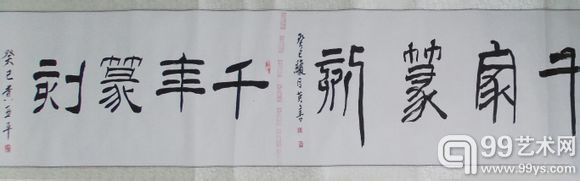 千家篆刻
癸巳
千年篆刻
癸巳黄亚平
99艺术网
www.99ys.com